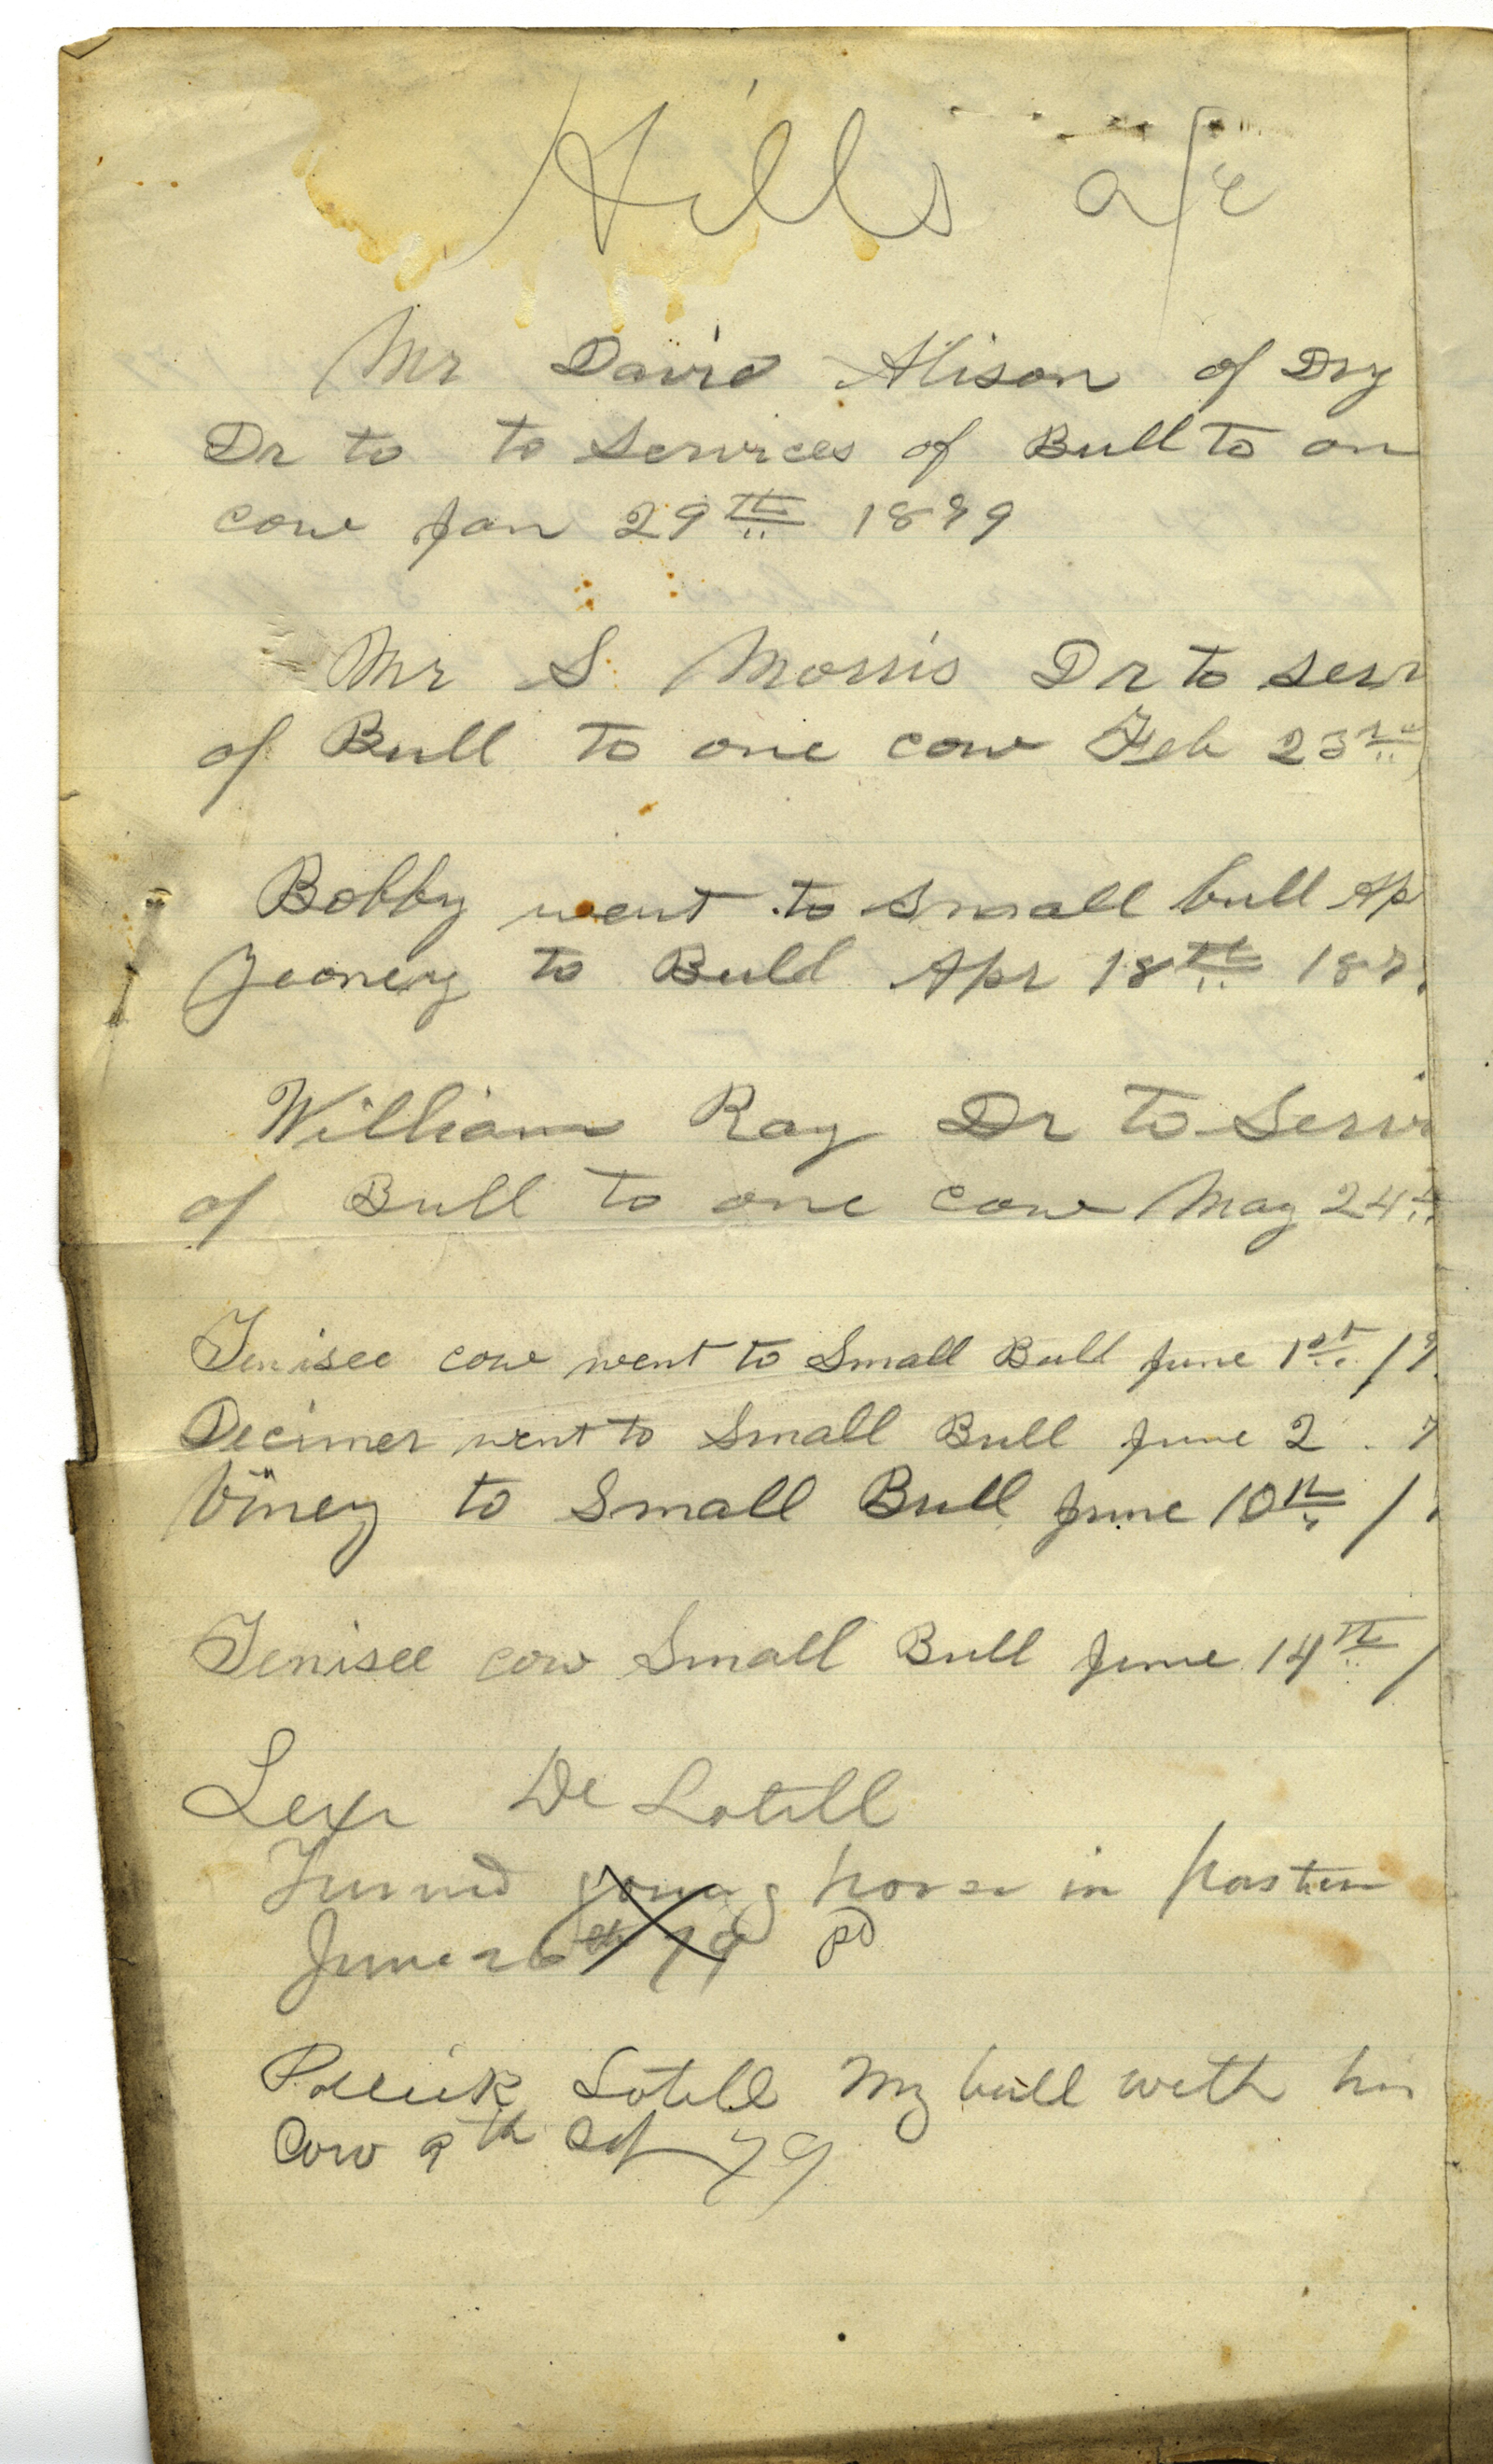 Hills a/c
Mr David Alison of Dry
Dr to to Services of Bull to on
cow Jan 29th 1879
Mr S. Morris Dr to serv
of Bull to one cow Feb 23rd
Bobby went to Small bull Ap
to Bull Apr 18th 187
William Ray Dr to Serv
of Bull to one cow May 24
Tenisee cow went to Small Bull June 1st / 7
Decimer went to Small Bull June 2 . 7
Viney to Small Bull June 10th /
Tenisee cow Small Bull June 14th /
De Lotill
Turnd young horse in pastur
June 26th 79 pd
Lotill My bull with his
Cow 9th 79